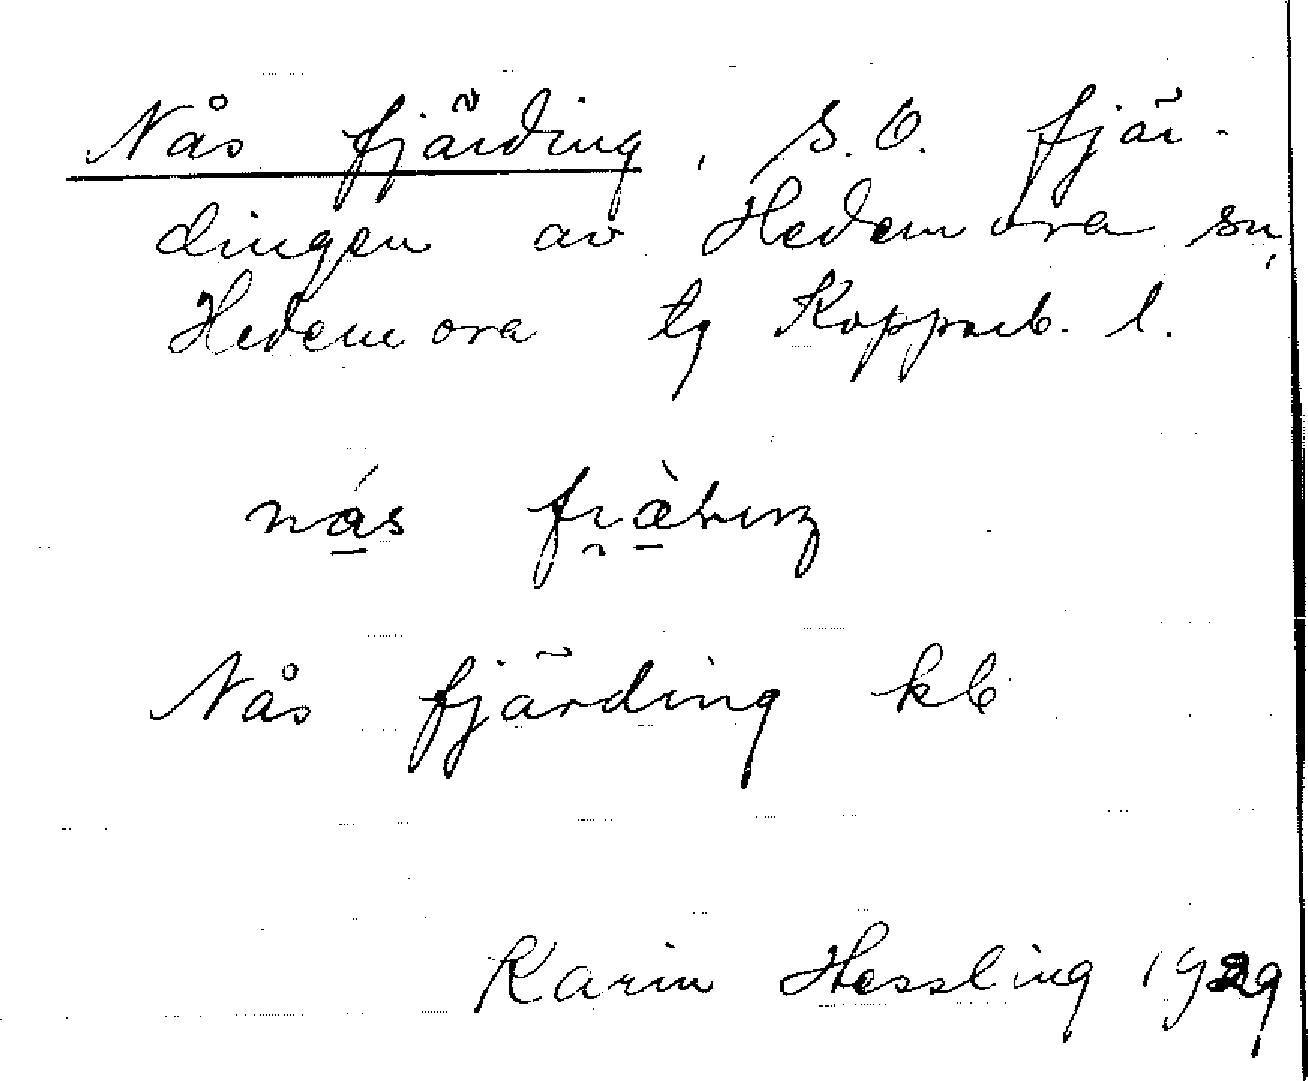 Nås fjärding, S.O. fjär-
dingen av Hedemora sn,
Hedemora tg Kopparb. l.
nás
Nås fjärding kb
Karin Hessling 1929